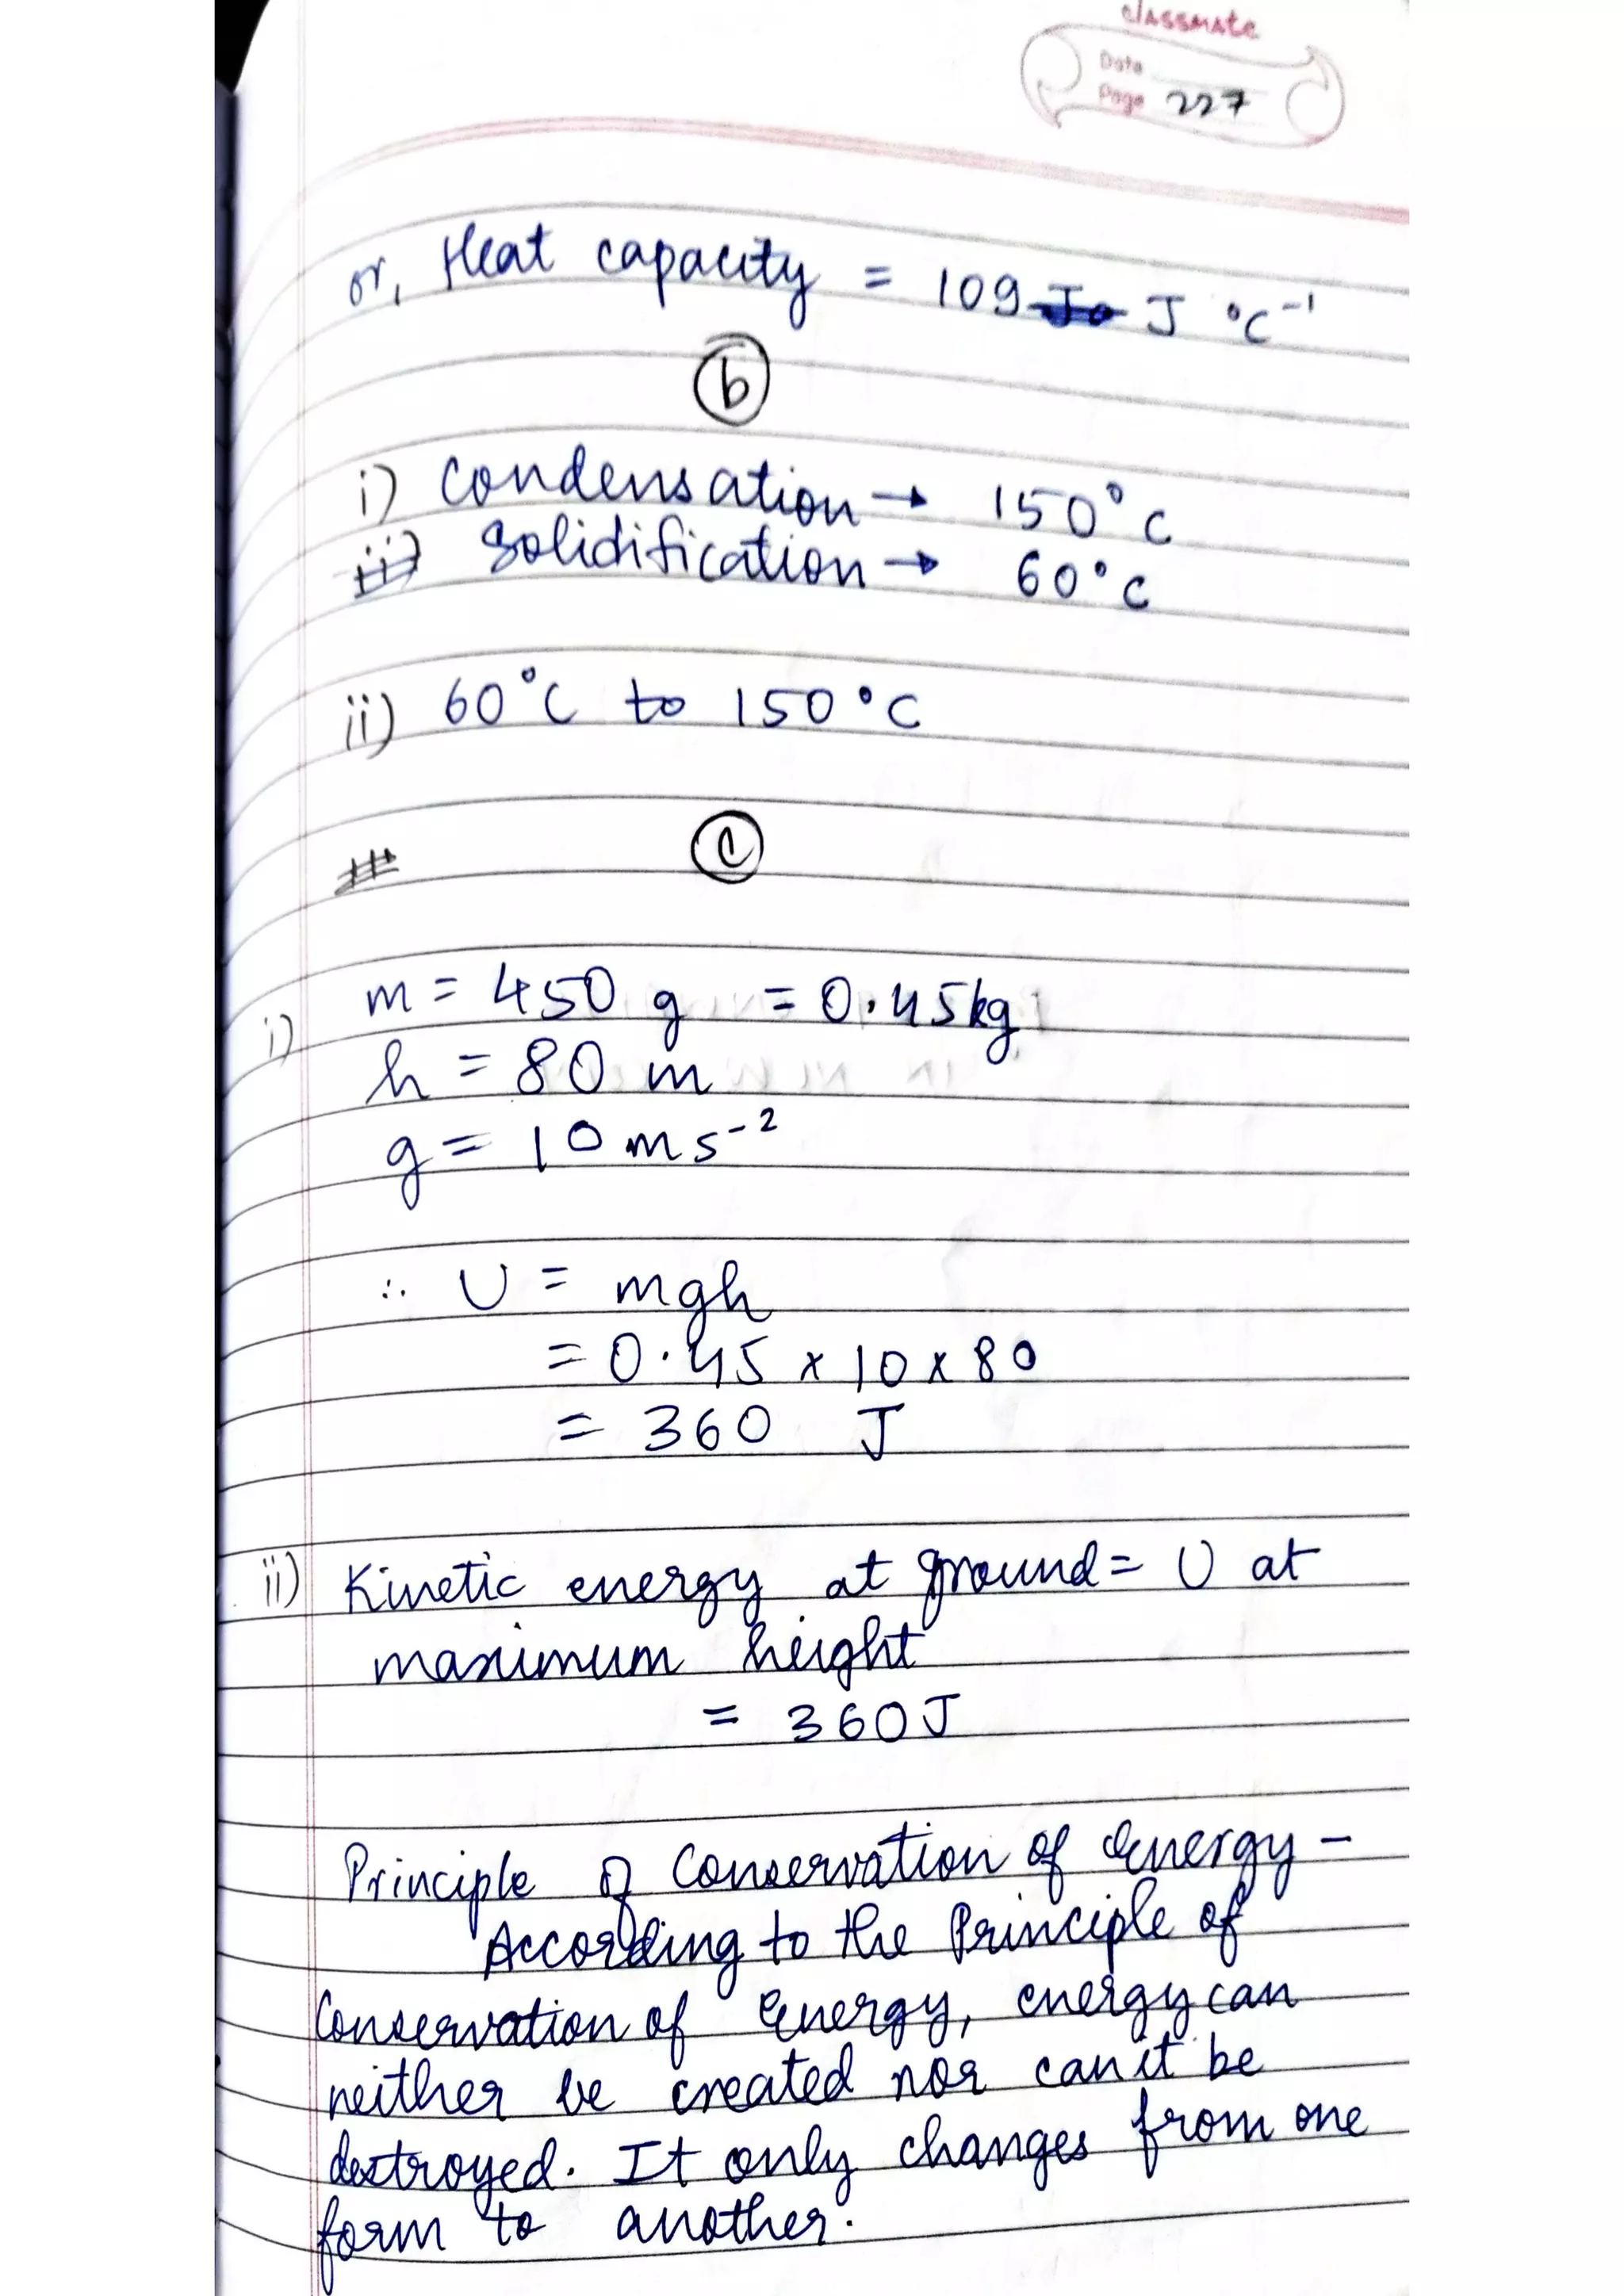 classmate
Date
Page 227
or, Heat capacity = 109 J °C⁻¹
b
i) Condensation → 150°C
Solidification → 60°C
ii) 60°C to 150°C
c
i) m = 450 g = 0.45kg
h = 80 m
g = 10 ms⁻²
∴ U = mgh
= 0.45 x 10 x 80
= 360 J
ii) Kinetic energy at ground = U at
maximum height
= 360J
Principle of Conservation of energy -
According to the Principle of
Conservation of Energy, energy can
neither be created nor can it be
destroyed. It only changes from one
form to another.